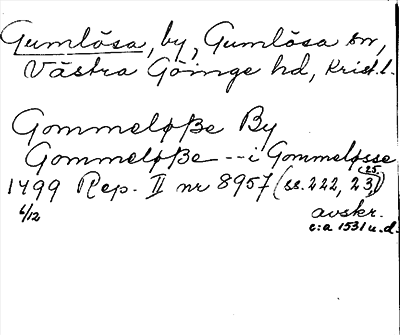 Gumlösa, by, Gumlösa sn,
Västra Göinge hd, Krist.l.
Gommeløße By
Gommeløße --- i Gommeløsse
1499 Rep. II nr 8957 (ss. 222, 23,)
25
6/12
avskr.
c:a 1531 u.d.